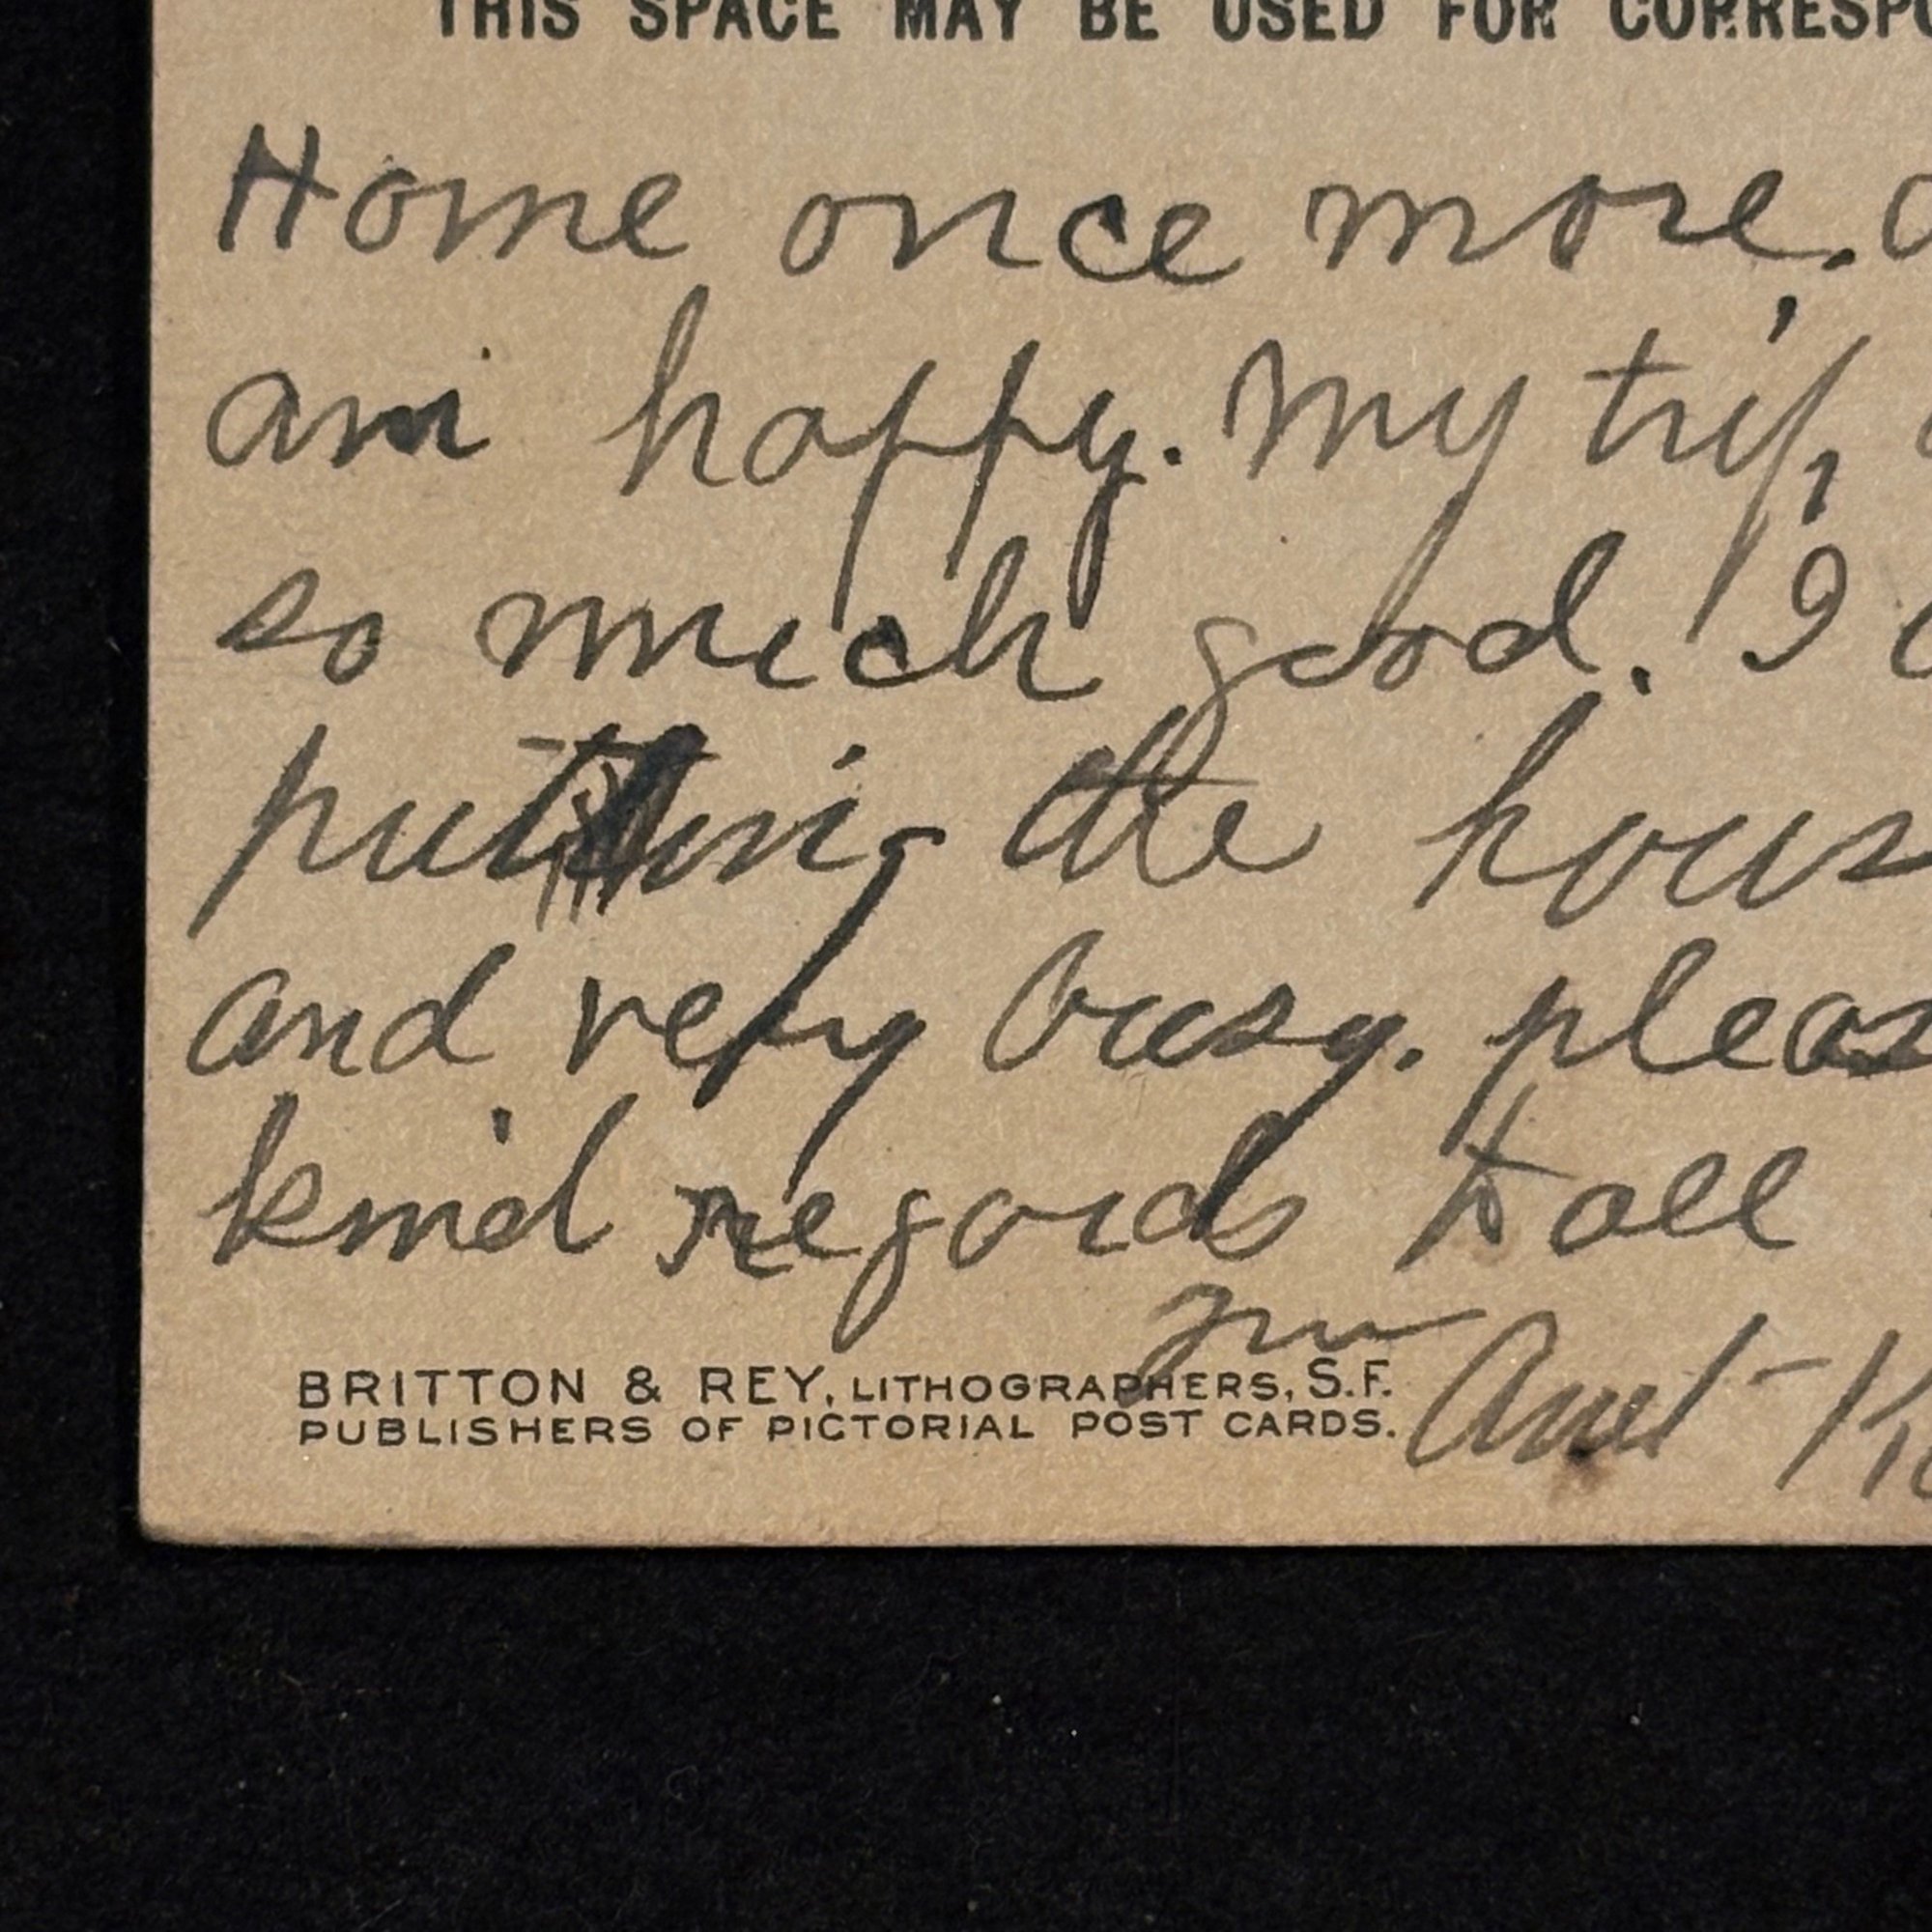 THIS SPACE MAY BE USED FOR CORRESPO
Home once more.
am happy. My trip
so much good. I
putting the hous
and very busy. pleas
kind regards to all
BRITTON & REY, LITHOGRAPHERS, S.F.
PUBLISHERS OF PICTORIAL POST CARDS.
Aunt